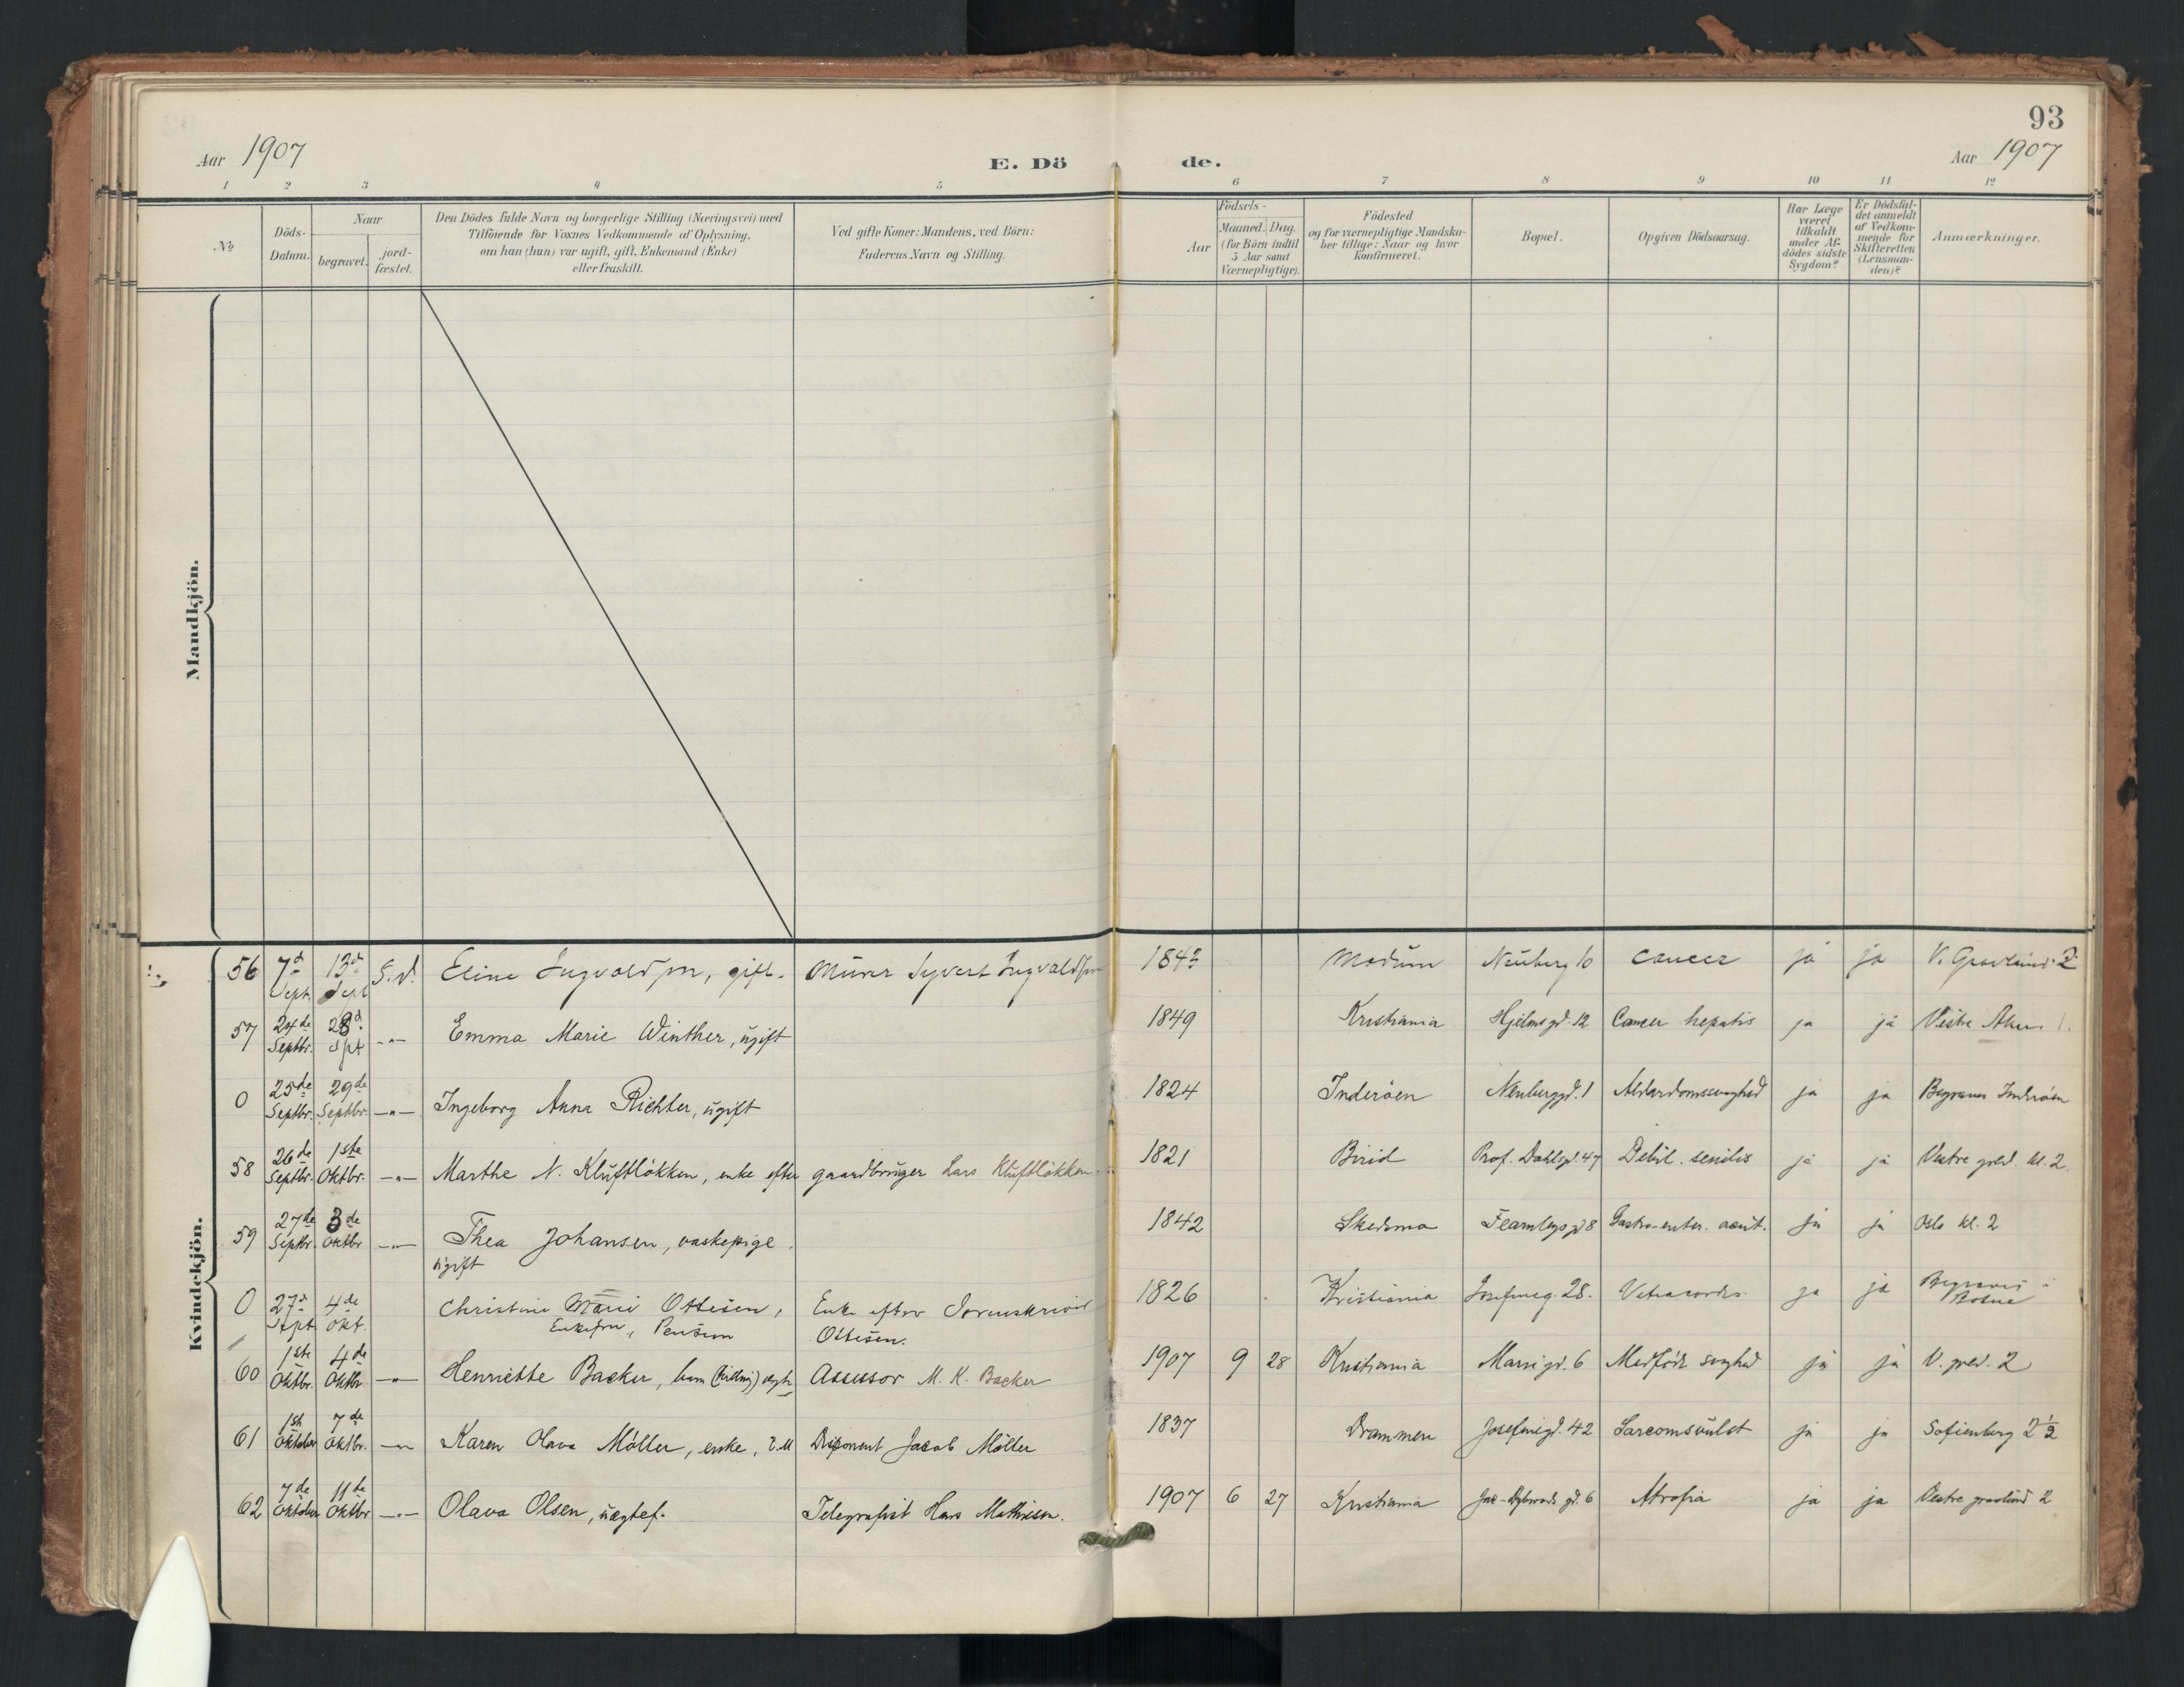 93
Aar 1907
E. Dö de.
Aar 1907
1 2 3 4 5 6 7 8 9 10 11 12
No
Döds-Datum.
Naar
begravet.
jord-fæstet.
Den Dödes fulde Navn og borgerlige Stilling (Næringsvei) med
Tilföiende for Voxnes Vedkommende af Oplysning,
om han (hun) var ugift, gift, Enkemand (Enke)
eller fraskilt.
Ved gifte Koner: Mandens, ved Börn:
Faderens Navn og Stilling.
Födsels-
Aar
Maaned. Dag.
(for Börn indtil
5 Aar samt
Værnepligtige).
Födested
og for værnepligtige Mandska-
ber tillige: Naar og hvor
konfirmeret.
Bopæl.
Opgiven Dödsaarsag.
Har Læge
været
tilkaldt
under Af-
dödes sidste
Sygdom?
Er Dödsfal-
det anmeldt
af Vedkom-
mende for
Skifteretten
(Lensman-
den)?
Anmærkninger.
Mandkjön.
Kvindekjön.
56 7d Sept. 13d Sept S.d. Eline Ingvaldsen, gift. Murer Syvert Ingvaldsen 1843 Modum Neuberg 10 Cancer ja ja V. Gravlund 2
57 24de Septbr. 28d Spt -"- Emma Marie Winther, ugift 1849 Kristiania Hjelmsgd. 12 Cancer hepatis ja ja Vestre Aker 1.
0 25de Septbr. 29de Septbr. -"- Ingeborg Anna Richter, ugift 1824 Inderöen Neuberggd. 1 Alderdomssvaghed ja ja Begraves Inderöen
58 26de Septbr. 1ste Oktbr. -"- Marthe N. Kluftlökken, enke efter gaardbruger Lars Kluftlökken 1821 Birid Prof. Dahlsgd. 47 Debil. senilis ja ja Vestre gravl. kl. 2
59 27de Septbr. 3de Oktbr -"- Thea Johansen, vaskepige 1842 Skedsmo Fearnleysgd 8 Gastro-enter. acut. ja ja Oslo kl. 2
ugift
0 27d Sept. 4de Okt. Christine Marie Ottesen, Enke efter Sorenskriver 1826 Kristiania Josefinesg. 28. cordis. ja ja Begraves
Enkefru, Pension Ottesen.
60 1ste Oktbr. 4de Oktbr -"- Henriette Backer, barn (tvilling) ægte Assessor M. K. Backer 1907 9 28 Kristiania Marsigd. 6 Medfödt svaghed ja ja V. gravl. 2
61 1ste Oktober 7de Oktbr. -"- Karen Olava Möller, enke, Disponent Jacob Möller 1837 Drammen Josefinegd. 42 Sarcomsvulst ja ja Sofienberg 2½
62 7de Oktober 11te Oktbr -"- Olava Olsen, uægtef. Telegrafist Hans Mathisen. 1907 6 27 Kristiania Jac-Dybwads gd. 6 Atrofia ja ja Vestre gravlund 2